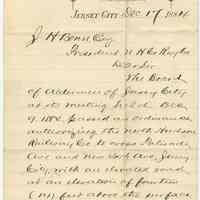 JERSEY CITY, Dec 17, 1884
J H Bonn Esq
President N. H. Co Railway
Dear Sir
The Board
of Aldermen of Jersey City
at its meeting held Dec
9, 1884 passed an ordinance
authorizing the North Hudson
Railway Co to cross Palisade
Ave and New York Ave, Jersey
City, with an elevated road
at an elevation of fourteen
(14) feet above the surface